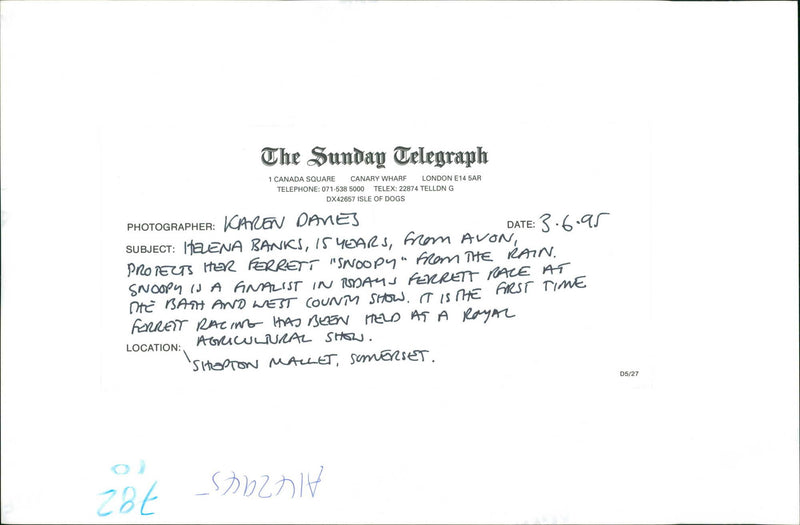 The Sunday Telegraph
1 CANADA SQUARE CANARY WHARF LONDON E14 5AR
TELEPHONE: 071-538 5000 TELEX: 22874 TELLDN G
DX42657 ISLE OF DOGS
PHOTOGRAPHER: KAREN DAVIES DATE: 3.6.95
SUBJECT: HELENA BANKS, 15 YEARS, FROM AVON,
PROTECTS HER FERRETT "SNOOPY" FROM THE RAIN.
SNOOPY IS A FINALIST IN TODAYS FERRETT RACE AT
THE BATH AND WEST COUNTY SHOW. IT IS THE FIRST TIME
FERRETT RACING HAS BEEN HELD AT A ROYAL
AGRICULTURAL SHOW.
LOCATION:
SHEPTON MALLET, SOMERSET.
D5/27
10
782